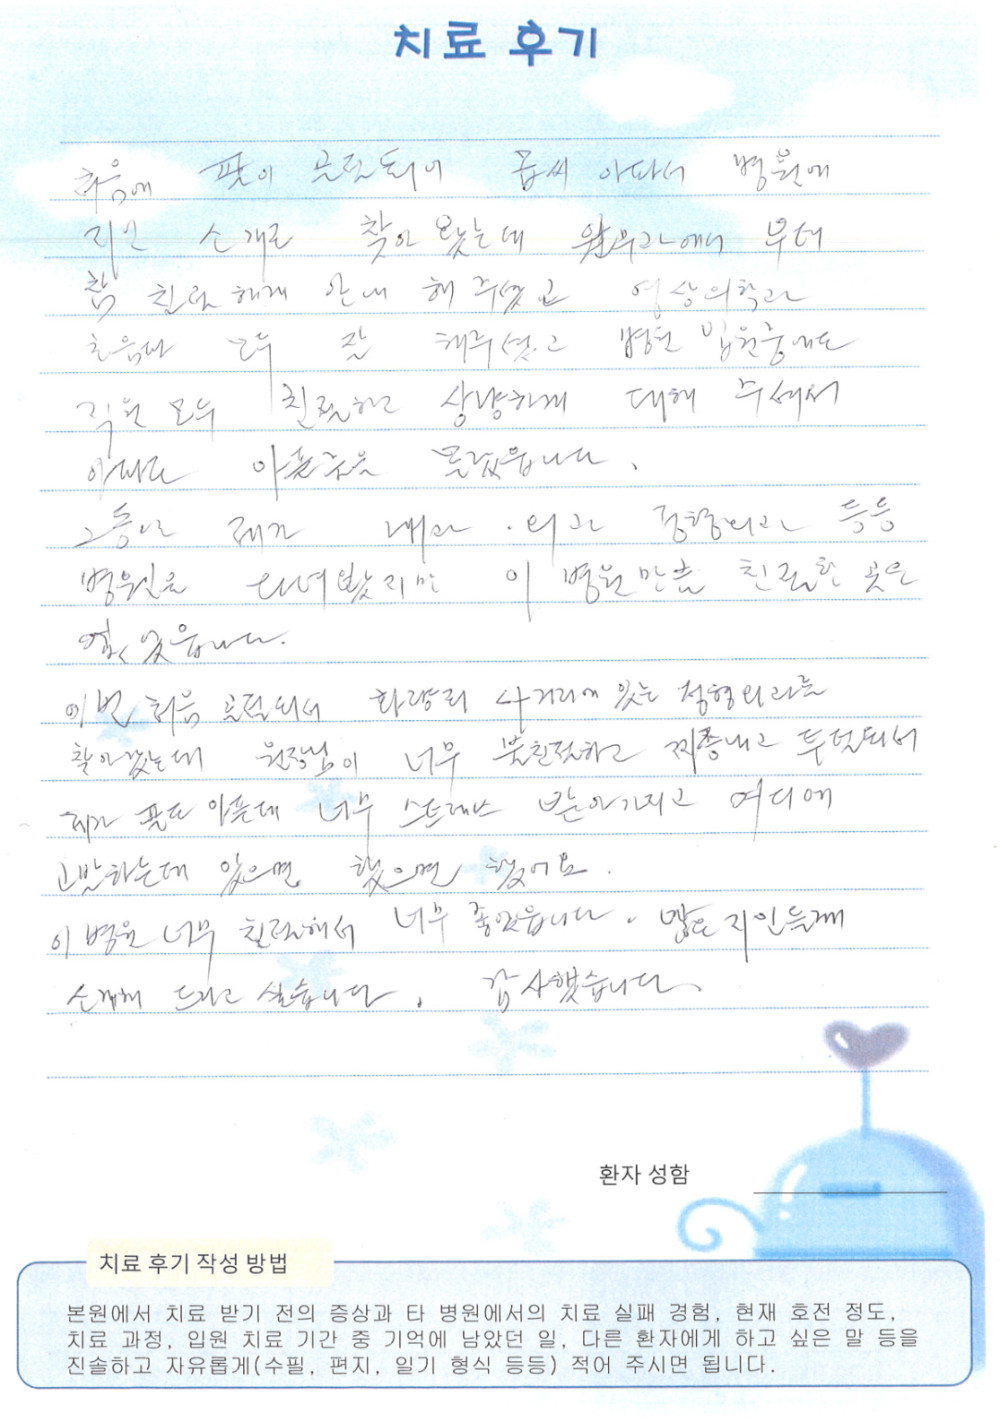 치료 후기
처음에 팔이 골절되어 몹씨 아파서 병원에
지인 소개로 찾아 왔는데 원무과에서 부터
참 친절하게 안내 해 주셨고 영상의학과
모두 잘 해주셨고 병원 입원중에도
직원 모두 친절하고 상냥하게 대해 주셔서
아파도 아픈줄을 몰랐읍니다.
그동안 제가 내과. 외과 정형외과 등등
병원을 다녀봤지만 이 병원만큼 친절한 곳은
없었읍니다.
이번 처음 골절되서 화랑리 사거리에 있는 정형외과를
찾아갔는데 원장님이 너무 불친절하고 짜증내고
제가 팔도 아픈데 너무 스트레스 받아가지고 어디에
고발하는데 있으면 했으면 했어요.
이 병원 너무 친절해서 너무 좋았읍니다. 많은 지인들께
소개해 드리고 싶습니다. 감사했습니다.
환자 성함
치료 후기 작성 방법
본원에서 치료 받기 전의 증상과 타 병원에서의 치료 실패 경험, 현재 호전 정도,
치료 과정, 입원 치료 기간 중 기억에 남았던 일, 다른 환자에게 하고 싶은 말 등을
진솔하고 자유롭게(수필, 편지, 일기 형식 등등) 적어 주시면 됩니다.